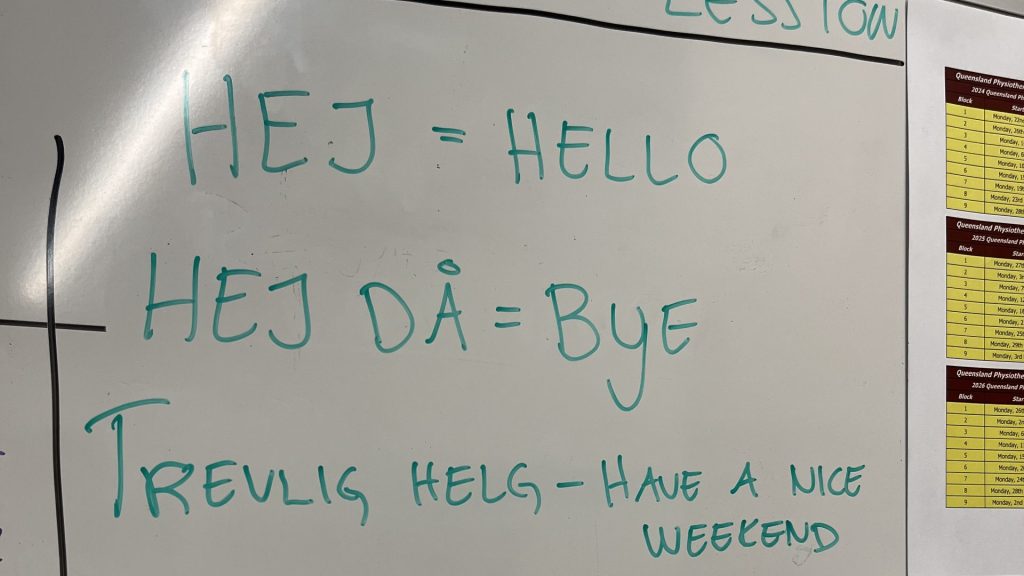 LESSION
HEJ = HELLO
HEJ DÅ = BYE
TREVLIG HELG - HAVE A NICE
WEEKEND
Queensland Physiothe
2024 Queensland Ph
Block Star
1 Monday, 22n
2 Monday, 26th
3 Monday, 1
4 Monday, 6
5 Monday, 1
6 Monday, 15
7 Monday, 19
8 Monday, 23rd
9 Monday, 28
Queensland Physiothe
2025 Queensland Ph
Block Star
1 Monday, 27
2 Monday, 3
3 Monday, 7
4 Monday, 1
5 Monday, 16
6 Monday, 2
7 Monday, 25
8 Monday, 29th
9 Monday, 3rd
Queensland Physiothe
2026 Queensland Ph
Block Star
1 Monday, 26
2 Monday, 2n
3 Monday, 6
4 Monday, 1
5 Monday, 15
6 Monday, 2
7 Monday, 24
8 Monday, 28th
9 Monday, 2nd